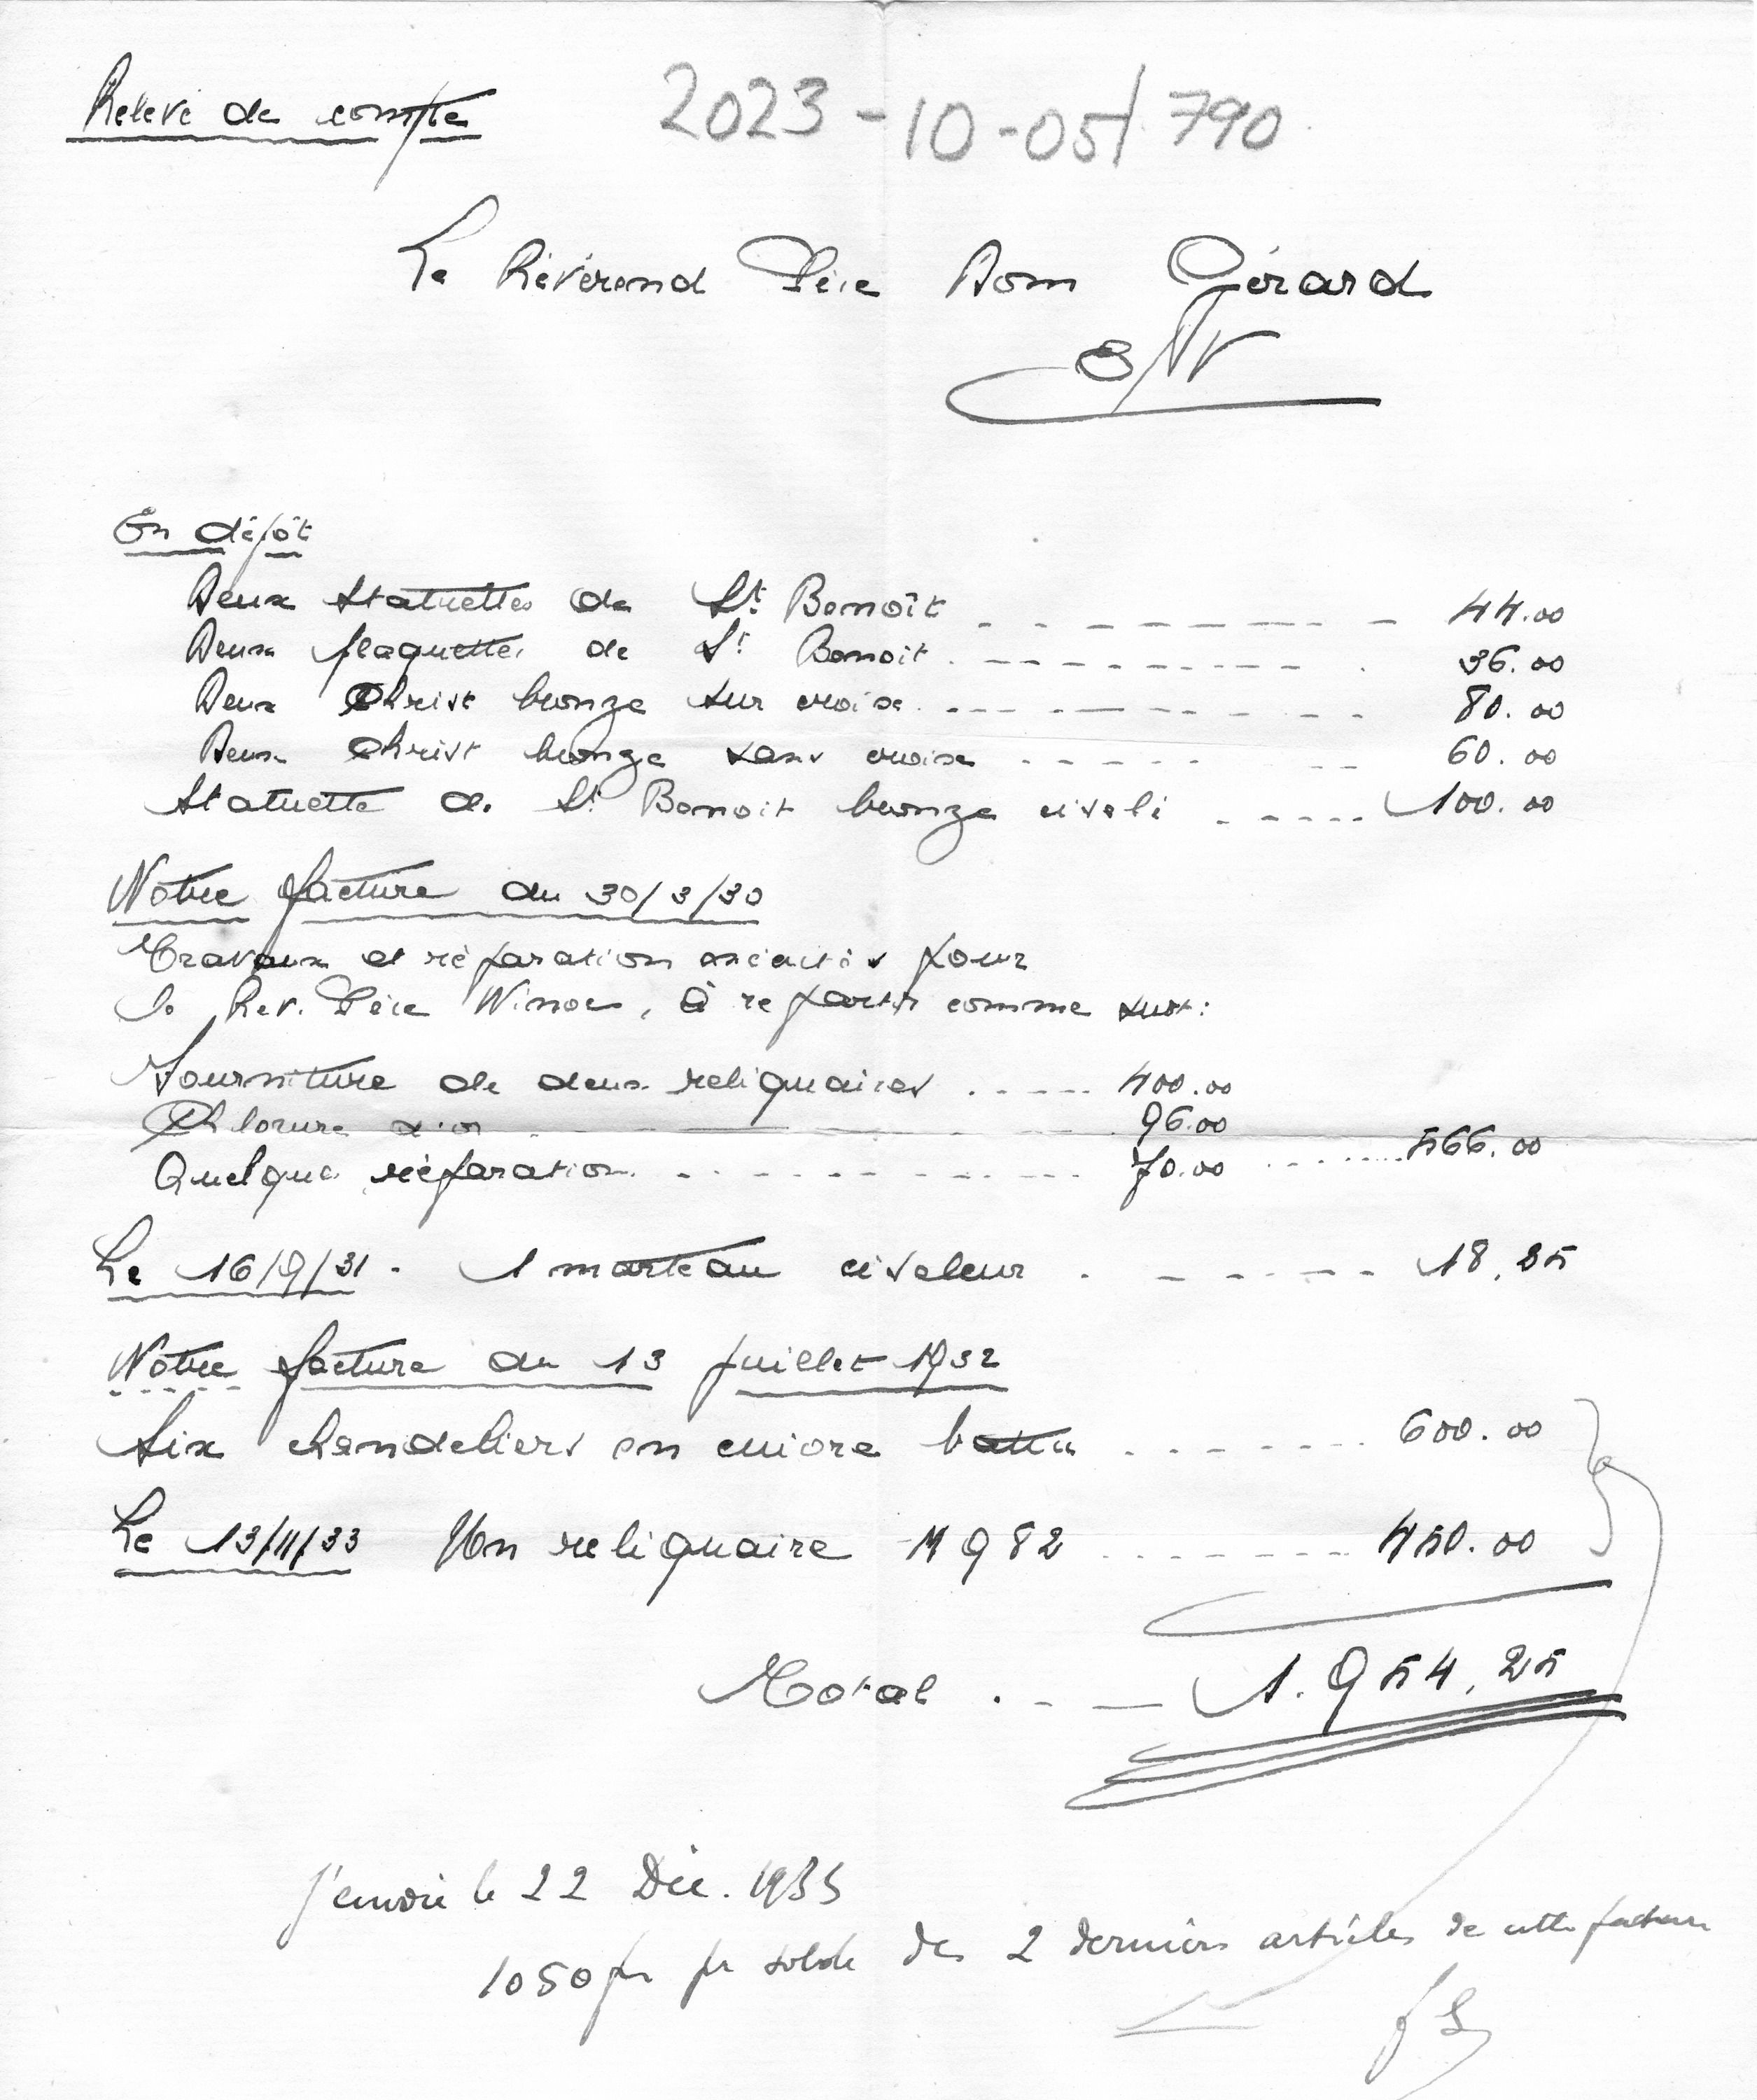 Relevé de compte
2023-10-05/790
Le Révérend Père Dom Gérard
En dépôt
Deux statuettes de St Benoît 44.00
Deux plaquettes de St Benoit 36.00
Deux Christ bronze sur croix 80.00
Deux Christ bronze sans croix 60.00
Statuette de St Benoit bronze ciselé 100.00
Notre facture du 30/3/30
Travaux et réparation exécutés pour
le Rev. Père Winoc, à répartir comme suit:
Fourniture de deux reliquaires 400.00
Chlorure d'or 96.00
Quelque réparation 70.00 566.00
Le 16/9/31. 1 marteau ciseleur 18,25
Notre facture du 13 juillet 1932
Six chandeliers en cuivre battu 600.00
Le 13/11/33 Un reliquaire M 982 450.00
Total 1.954,25
J'envoie le 22 Déc. 1933
1050 frs pr solde des 2 derniers articles de cette facture